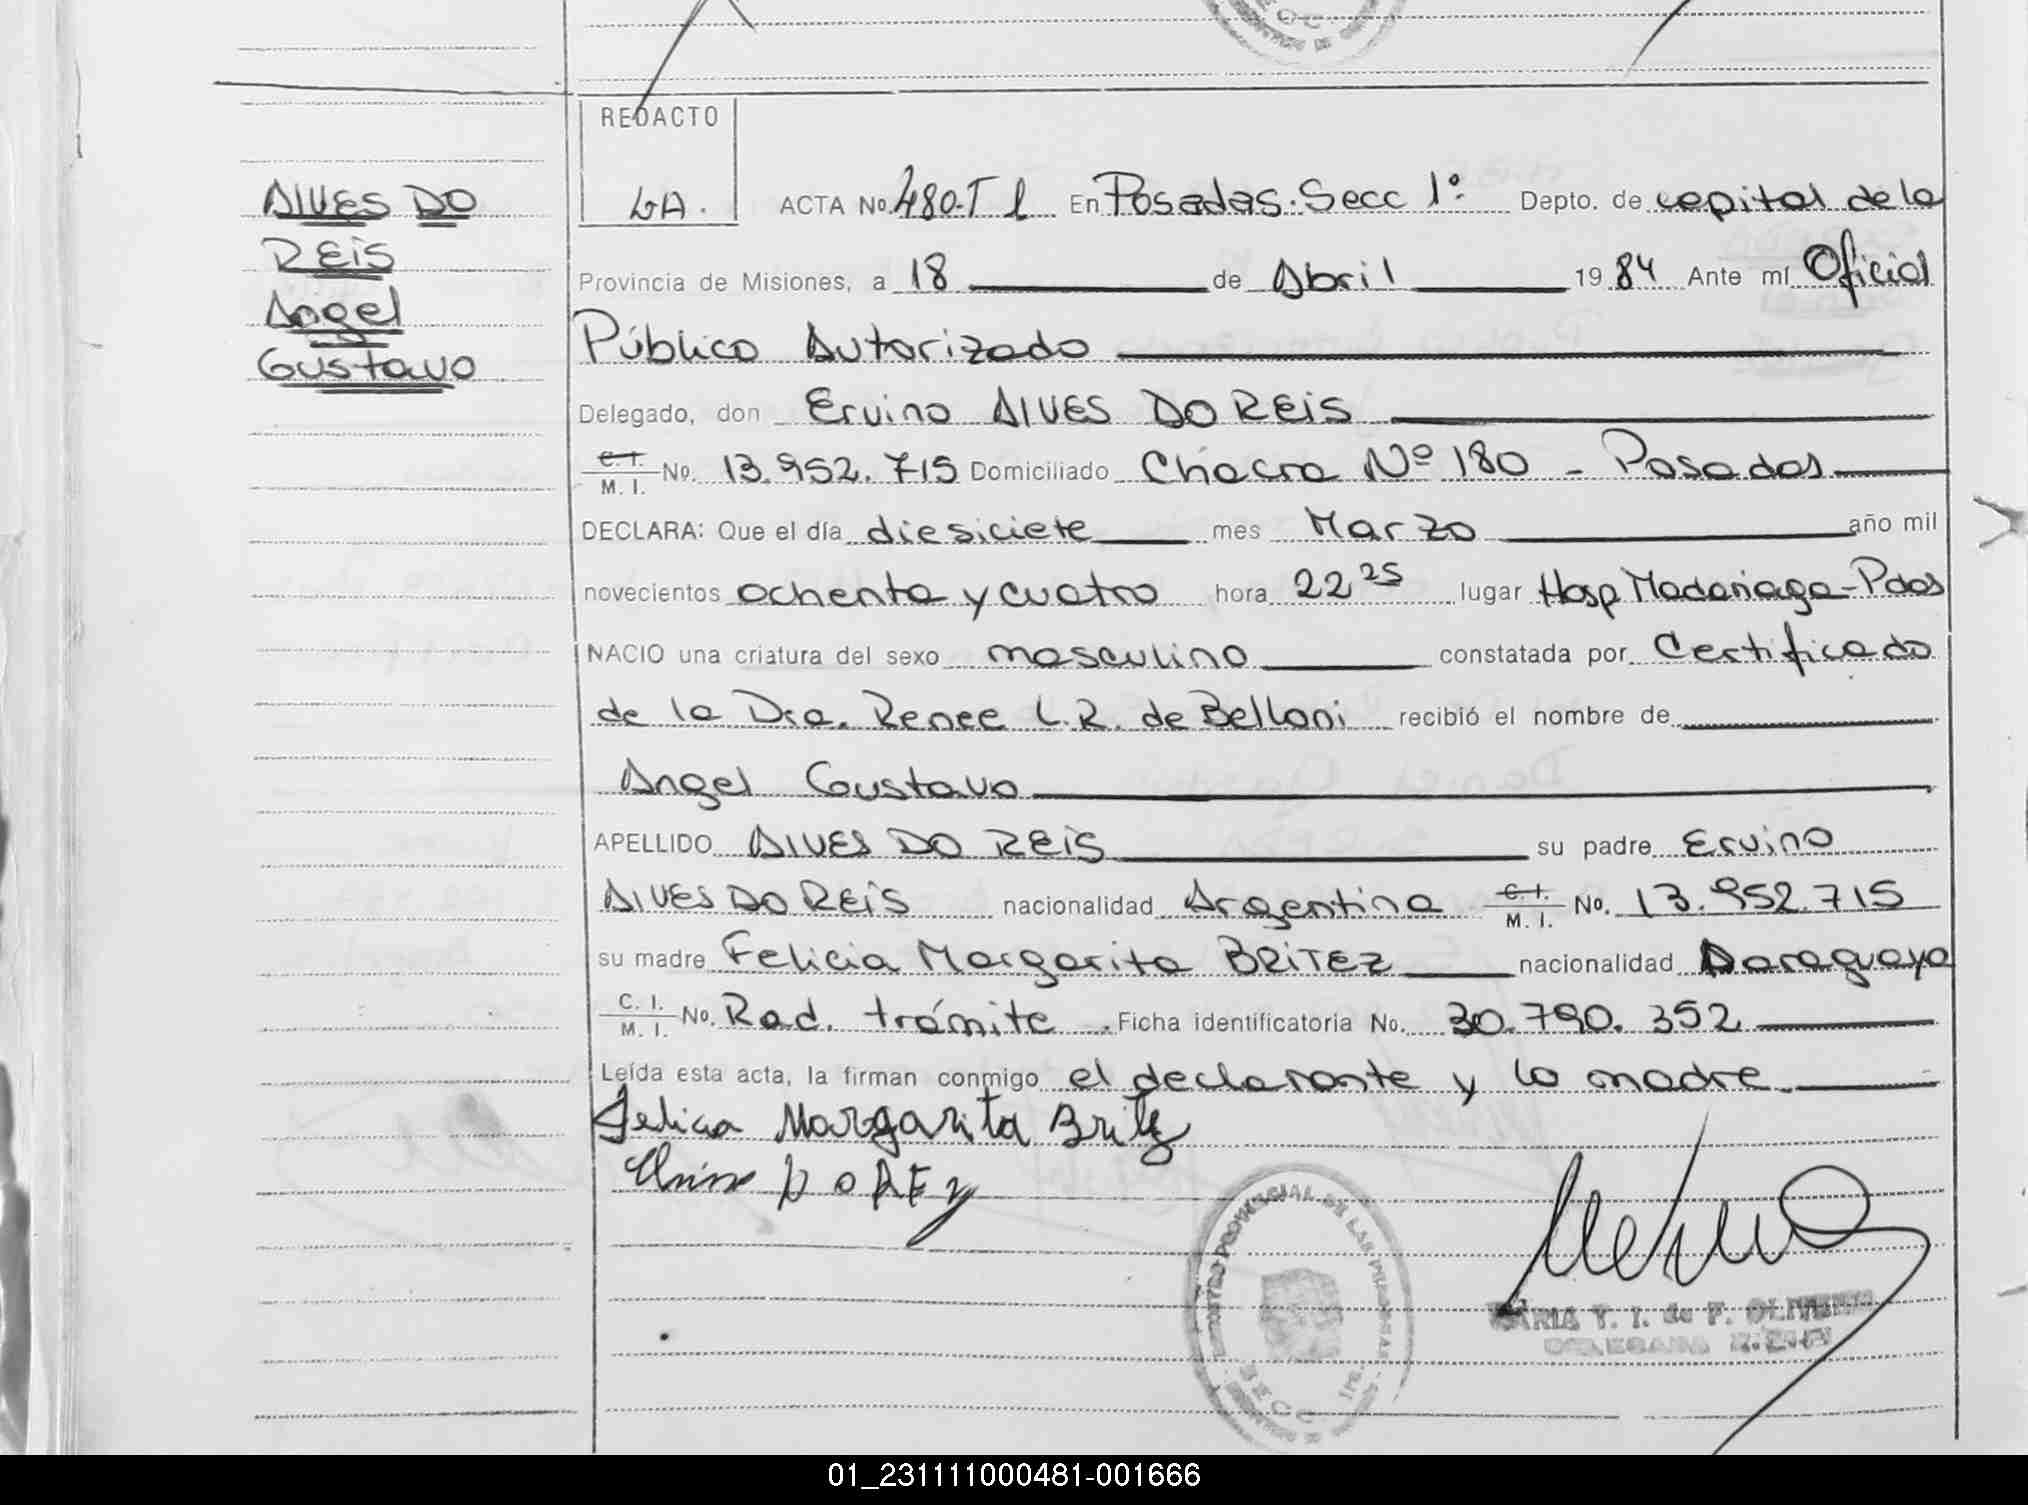 REDACTO
GA.
ALVES DO
REIS
Angel
Gustavo
ACTA No. 480-T I En Posadas. Secc 1º Depto. de capital de la
Provincia de Misiones, a 18 de Abril 1984 Ante mí Oficial
Público Autorizado
Delegado, don Ervino ALVES DO REIS
C.I. M. I. No. 13.952.715 Domiciliado Chacra Nº 180 - Posadas
DECLARA: Que el día diesiciete mes Marzo año mil
novecientos ochenta y cuatro hora 22 25 lugar Hosp Madariaga-Pdas
NACIO una criatura del sexo masculino constatada por Certificado
de la Dra. Renee L.R. de Belloni recibió el nombre de
Angel Gustavo
APELLIDO ALVES DO REIS su padre Ervino
ALVES DO REIS nacionalidad Argentina C.I. M. I. No. 13.952.715
su madre Felicia Margarita BRITEZ nacionalidad Paraguaya
C. I. M. I. No. Rad. trámite Ficha identificatoria No. 30.790.352
Leída esta acta, la firman conmigo el declarante y la madre
Felicia Margarita Britez
MARIA T. I. de F.
01_231111000481-001666